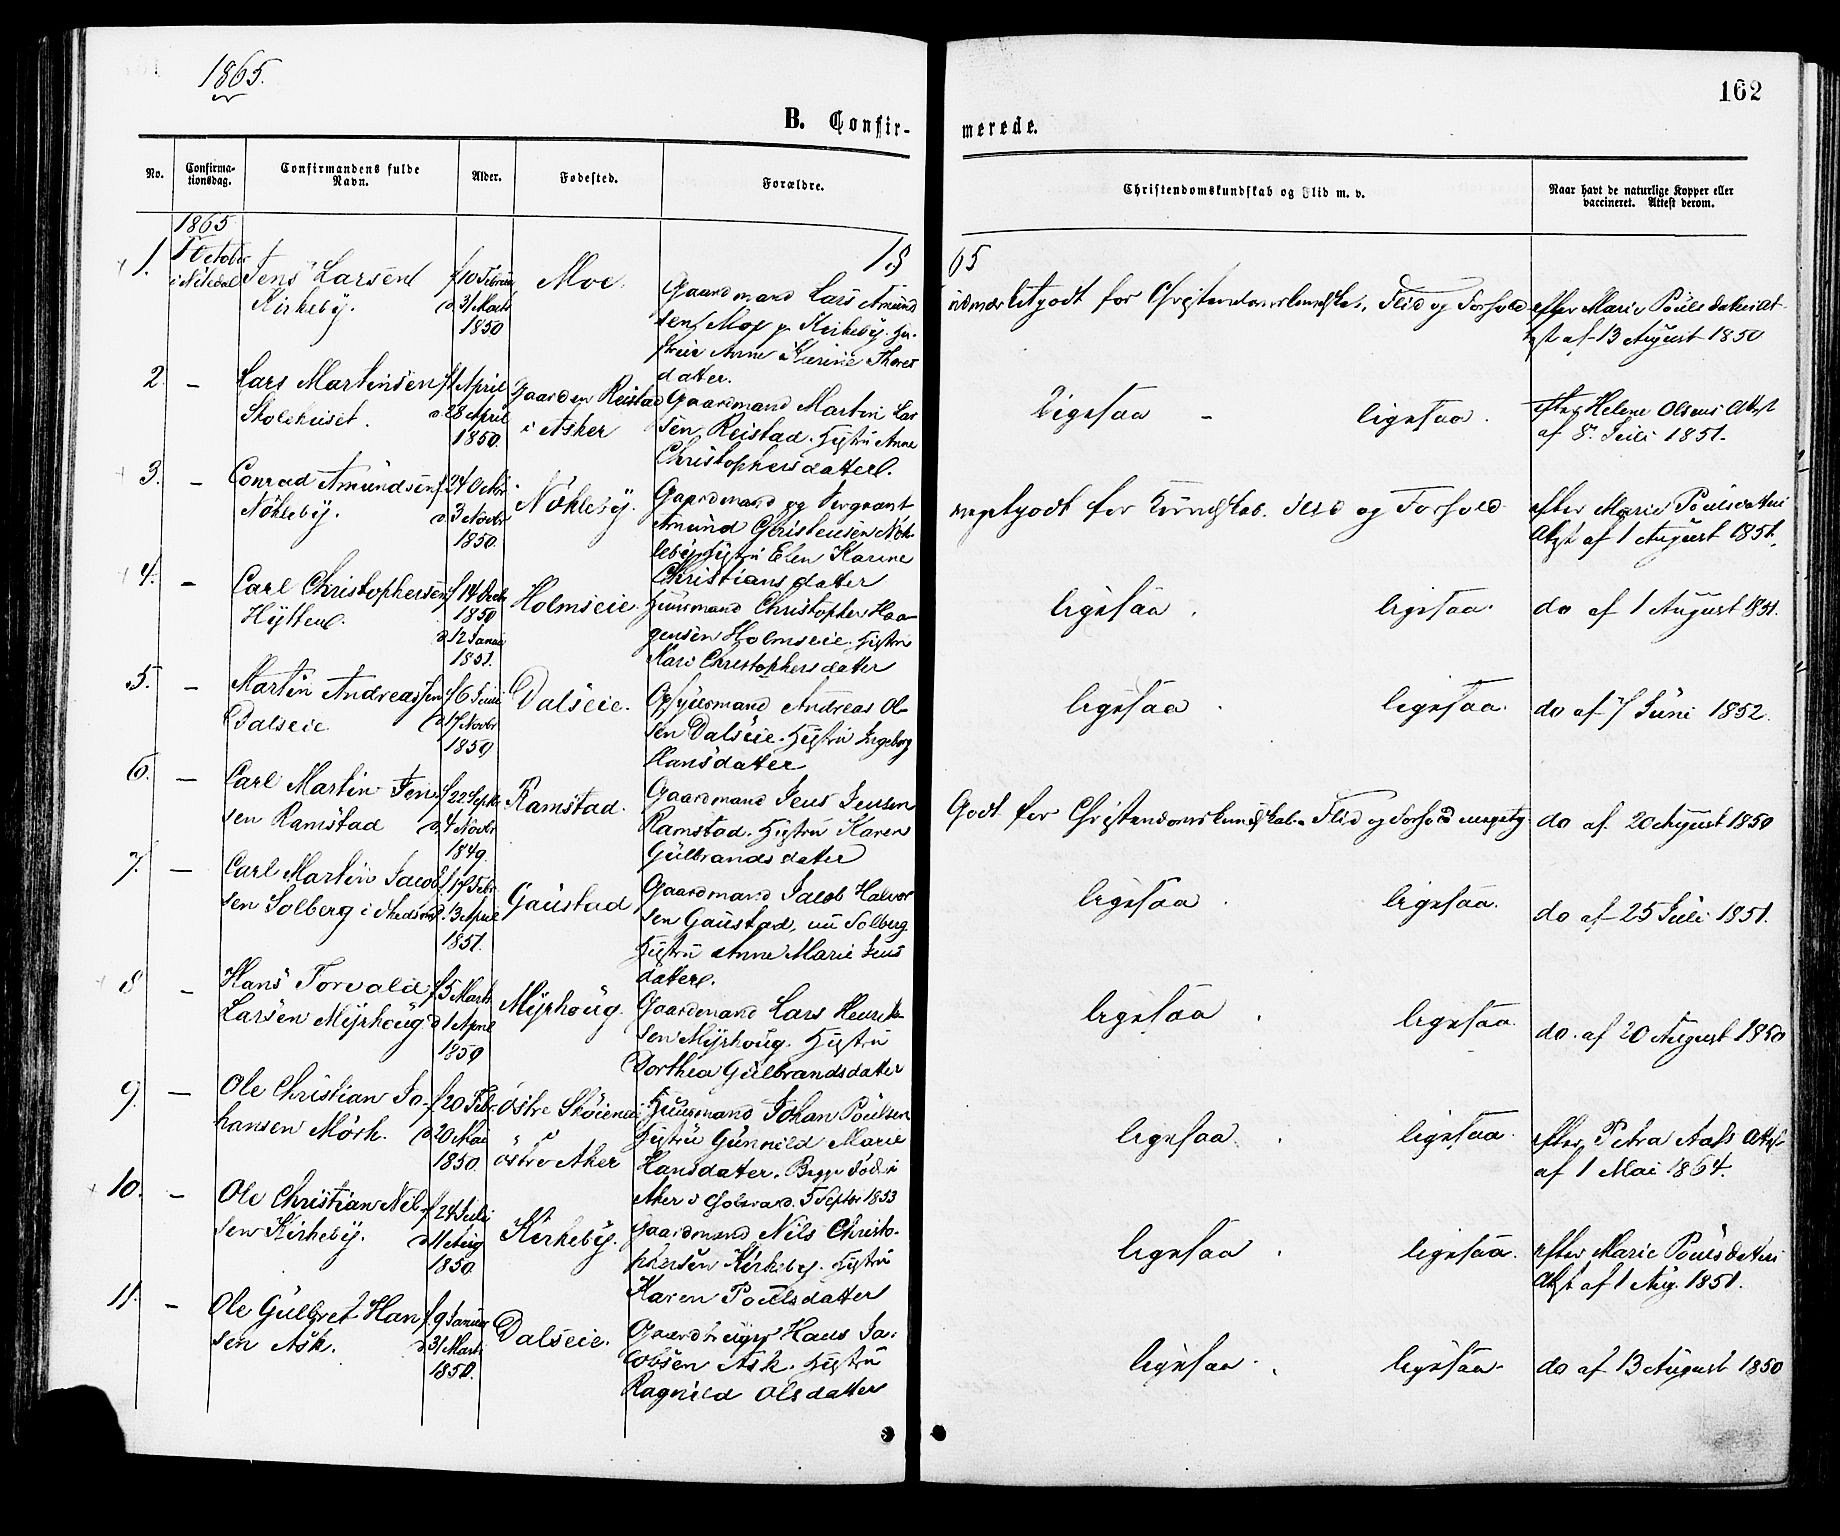 1865.
162
B. Confir-
merede.
No.
Confirma-
tionsdag.
Confirmandens fulde
Navn.
Alder.
Fødested.
Forældre.
Christendomskundskab og Flid m. v.
Naar havt de naturlige Kopper eller
vaccineret. Attest derom.
1865
18 65
1.
1 October
i Nitedal
Jens Larsen
Kirkeby.
f 10 Februar
d 31 Marts
1850
Moe.
Gaardmand Lars Amund
sen Moe p. Kirkeby. Hu-
strue Anne Karine Thores
datter.
udmærket godt for Christendomskundskab, Flid og Forhold
efter Marie Pouls datters At-
test af 13 August 1850
2. -
Lars Martinsen
Skolehuset.
f 1 April
d 28 April
1850.
Gaarden Reistad
i Asker
Gaardmand Martin Lar
sen Reistad. Hustru Anne
Christophersdatter.
Ligesaa - ligesaa.
efter Helene Olsens Attest
af 8 Juli 1851.
3. -
Conrad Amundsen
Nökleby.
f 24 Octbr
d. 3 Novbr
1850.
Nökleby.
Gaardmand og Sergeant
Amund Christensen Nök-
leby. Hustru Elen Karine
Christiansdatter
meget godt for Kundskab. Flid og Forhold
efter Marie Poulsdatters
Attest af 1 August 1851.
4. -
Carl Christophersen
Hytten.
f 14 Decbr
1850
d 12 Januar
1851.
Holmseie.
Huusmand Christopher Haa-
gensen Holmseie. Hustru
Kari Christophersdatter
ligesaa. ligesaa.
do af 1 August 1851.
5. -
Martin Andreassen
Dalseie.
f 6 Juni
d 17 Novbr
1850
Dalseie.
Huusmand Andreas Ol-
sen Dalseie. Hustru Ingeborg
Hansdatter
ligesaa. ligesaa.
do af 7 Juni 1852.
6. -
Carl Martin Jen
sen Ramstad
f 22 Septbr
d 4 Novbr
1849.
Ramstad.
Gaardmand Jens Jensen
Ramstad. Hustru Karen
Gulbrandsdatter
Godt for Christendomskundskab. Flid og Forhold
do af 20 August 1850
7. -
Carl Martin Jacob
sen Solberg i Skedsmo
f. 17 Febr
d. 13 April
1851.
Gaustad
Gaardmand Jacob Halvor
sen Gaustad, nu Solberg
Hustru Anne Marie Jens
datter.
ligesaa. ligesaa.
do af 25 Juli 1851.
8 -
Hans Torvald
Larsen Myrhoug
f 5 Marts
d 1 April
1850
Myrhoug.
Gaardmand Lars Henrik
sen Myrhoug. Hustru
Dorthea Gulbrandsdatter
ligesaa. ligesaa.
do. af 20 August 1850
9. -
Ole Christian Jo-
hansen Mörk.
f 20 Febr.
d 20 Mai
1850.
östre Sköiena
i
östre Aker
Huusmand Johan Poulsen
Hustru Gunnild Marie
Hansdatter. Begge döde i
Aker 5 Septbr 1853
ligesaa. ligesaa.
efter Petra Aass Attest
af 1 Mai 1864.
10. -
Ole Christian Nil-
sen Kirkeby.
f 24 Juli
d 11 Aug
1850.
Kirkeby.
Gaardmand Nils Christo-
phersen Kirkeby. Hustru
Karen Poulsdatter
ligesaa. ligesaa.
efter Marie Poulsdatters
Attest af 1 Aug. 1851.
11. -
Ole Gulbret Han
sen Ask.
f 9 Januar
d 31 Marts
1850.
Dalseie.
Gaardbruger Hans Ja-
cobsen Ask. Hustru
Ragnild Olsdatter
ligesaa. ligesaa.
do af 13 August 1850